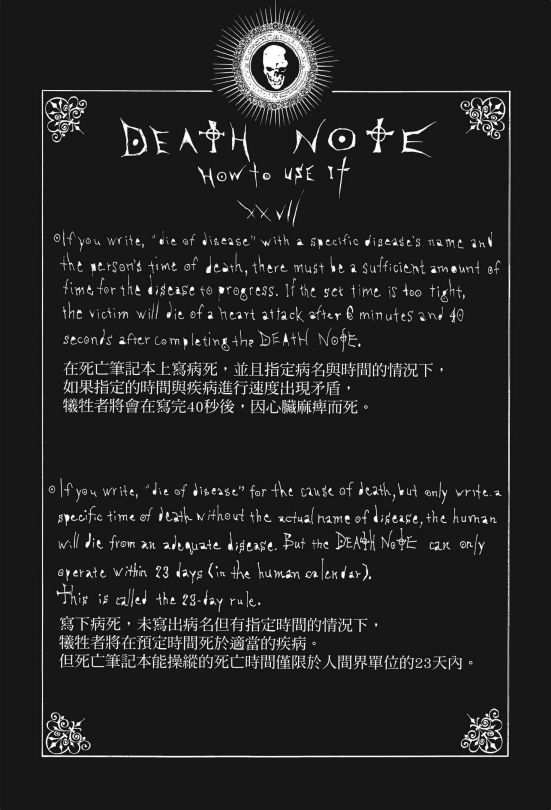 DEATH NOTE
HOW to USE IT
XXVII
If you write, "die of disease" with a specific disease's name and
the person's time of death, there must be a sufficient amount of
time for the disease to progress. If the set time is too tight,
the victim will die of a heart attack after 6 minutes and 40
seconds after completing the DEATH NOTE.
在死亡筆記本上寫病死，並且指定病名與時間的情況下，
如果指定的時間與疾病進行速度出現矛盾，
犧牲者將會在寫完40秒後，因心臟麻痺而死。
If you write, "die of disease" for the cause of death, but only write a
specific time of death without the actual name of disease, the human
will die from an adequate disease. But the DEATH NOTE can only
operate within 23 days (in the human calendar).
This is called the 23-day rule.
寫下病死，未寫出病名但有指定時間的情況下，
犧牲者將在預定時間死於適當的疾病。
但死亡筆記本能操縱的死亡時間僅限於人間界單位的23天內。